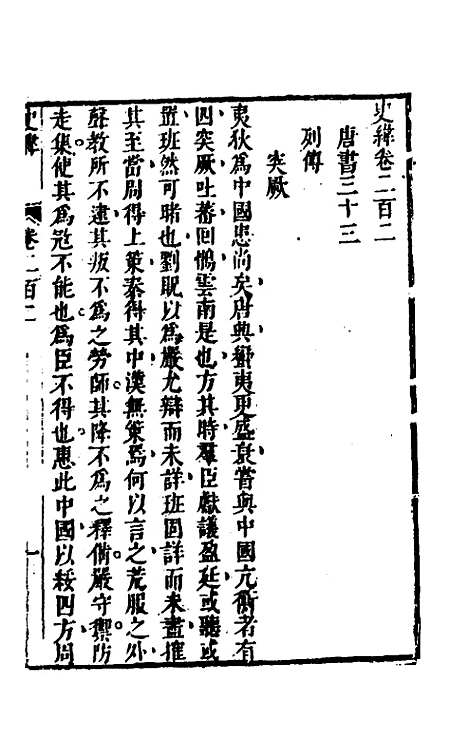 史緯卷二百二
唐書三十三
列傳
突厥
夷狄爲中國患尚矣唐興蠻夷更盛衰嘗與中國亢衡者有
四突厥吐蕃回鶻雲南是也方其時羣臣獻議盈延或聽或
置班然可睹也劉貺以爲嚴尤辯而未詳班固詳而未盡推
其至當周得上策秦得其中漢無策焉何以言之荒服之外
聲教所不逮其叛不爲之勞師其降不爲之釋備嚴守禦防
走集使其爲寇不能也爲臣不得也惠此中國以綏四方周
史緯
卷二百二
一